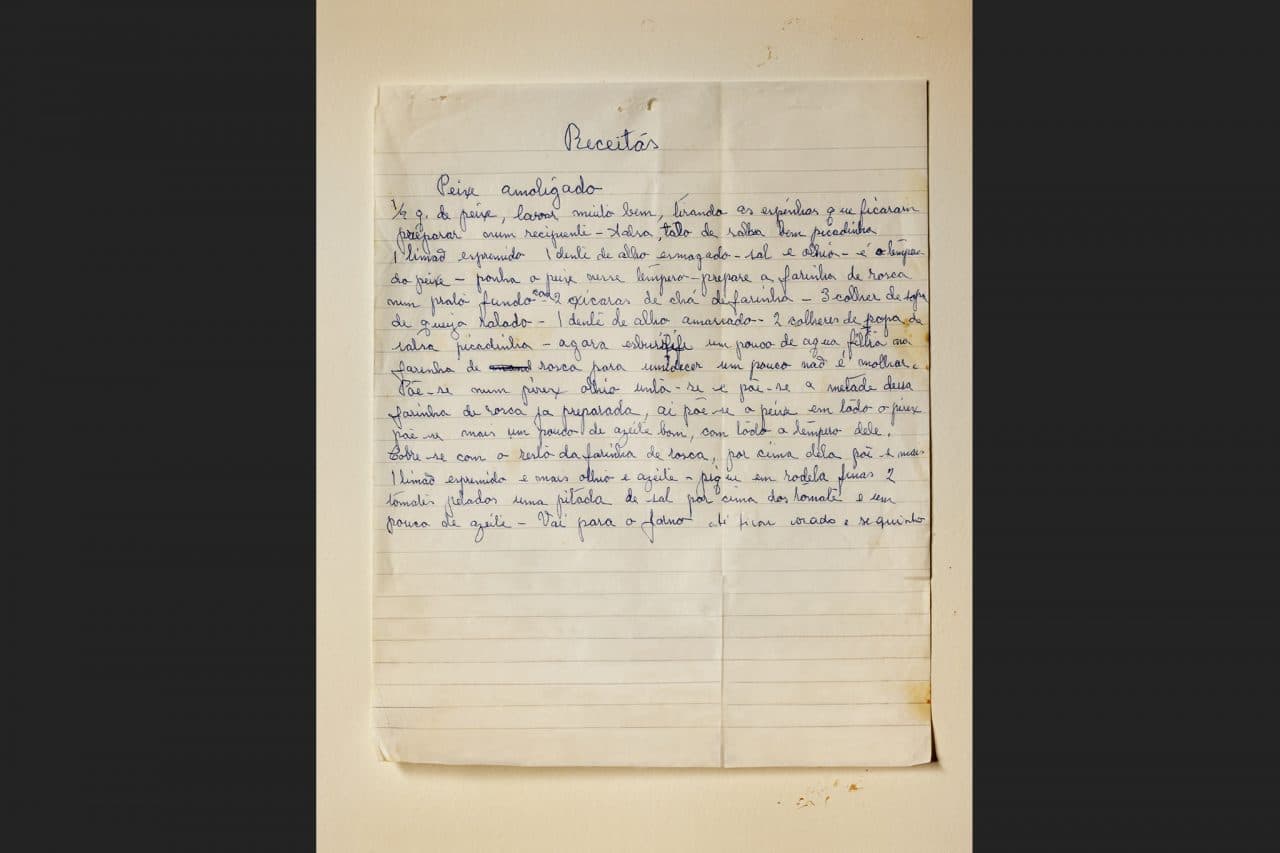 Receitás
Peixe amoligado
1/2 q. de peixe, lavar muito bem, tirando as espinhas que ficaram
preparar num recipiente - talo de salsa bem picadinha
1 limão espremido 1 dente de alho esmagado - sal e olhio - é o tempero
do peixe - ponha o peixe nesse tempero - prepare a farinha de rosca
num prato fundo com 2 xicaras de chá de farinha - 3 colher de sopa
de queijo ralado - 1 dente de alho amassado - 2 colheres de sopa de
salsa picadinha - agora um pouco de agua filtra na
farinha de rosca para umidecer um pouco não é molhar.
Põe-se num pirex olhio unta-se e põe-se a metade dessa
farinha de rosca ja preparada, ai põe-se o peixe em todo o pirex
põe-se mais um pouco de azeite bom, com todo o tempero dele.
Cobre-se com o resto da farinha de rosca, por cima dela põe-se mais
1 limão espremido e mais olhio e azeite - pique em rodela finas 2
tomates pelados uma pitada de sal por cima dos tomate e um
pouco de azeite - Vai para o forno até ficar corado e sequinho